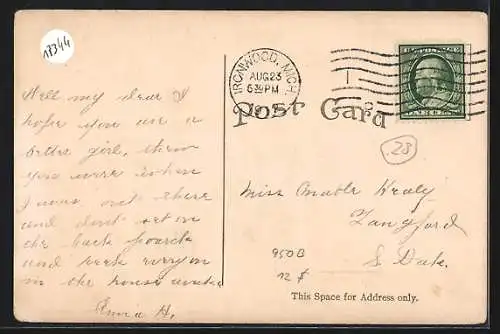 17344
Well my dear I
hope you are a
better girl, then
you were when
I was out there
and dont set on
the back poarch
and keek everyon
in the house awake
Anna H.
IRONWOOD, MICH.
AUG 23
6 30 PM
Post Card
23
Miss Mable Kealy
Langford
S Dak.
950B
12 $
This Space for Address only.